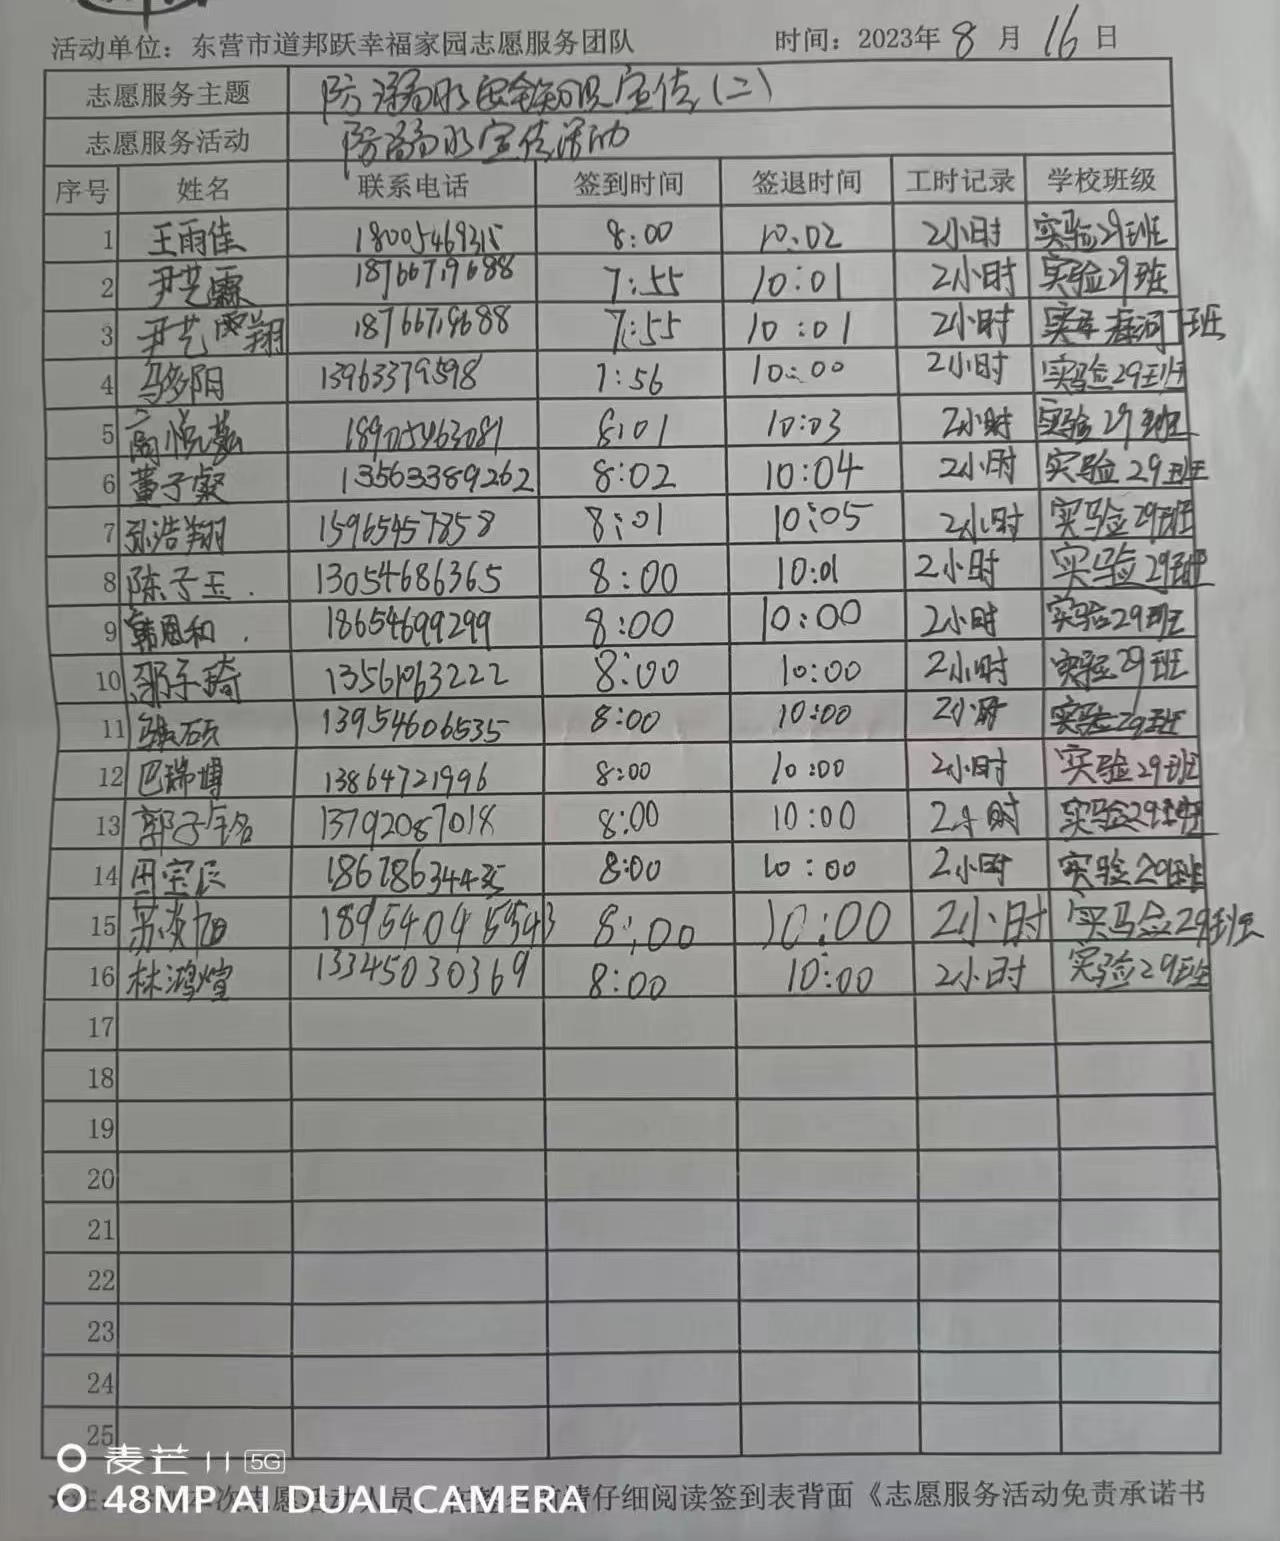 活动单位：东营市道邦跃幸福家园志愿服务团队 时间：2023年 8 月 16 日
志愿服务主题 防溺水安全知识宣传（二）
志愿服务活动 防溺水宣传活动
序号 姓名 联系电话 签到时间 签退时间 工时记录 学校班级
1 王雨佳 18005469315 8:00 10:02 2小时 实验29班
2 尹艺霖 18766719688 7:55 10:01 2小时 实验29班
3 尹艺 翔 18766719688 7:55 10:01 2小时
4 马多阳 13963379598 7:56 10:00 2小时 实验29班
5 高悦 18905463081 8:01 10:03 2小时 实验29班
6 董子粲 13563389262 8:02 10:04 2小时 实验29班
7 孙浩翔 15965457858 8:01 10:05 2小时 实验29班
8 陈子玉 13054686365 8:00 10:01 2小时 实验29班
9 韩恩和 18654699299 8:00 10:00 2小时 实验29班
10 邵子琦 13561063222 8:00 10:00 2小时 实验29班
11 13954606535 8:00 10:00 2小时 实验29班
12 巴瑞博 13864721996 8:00 10:00 2小时 实验29班
13 郭子铭 13792087018 8:00 10:00 2小时 实验29班
14 田宝辰 8:00 10:00 2小时 实验29班
15 8:00 10:00 2小时 实验29班
16 林鸿煊 13345030369 8:00 10:00 2小时 实验29班
17
18
19
20
21
22
23
24
25
麦芒 11 5G
48MP AI DUAL CAMERA
次志愿活动人员 请仔细阅读签到表背面《志愿服务活动免责承诺书